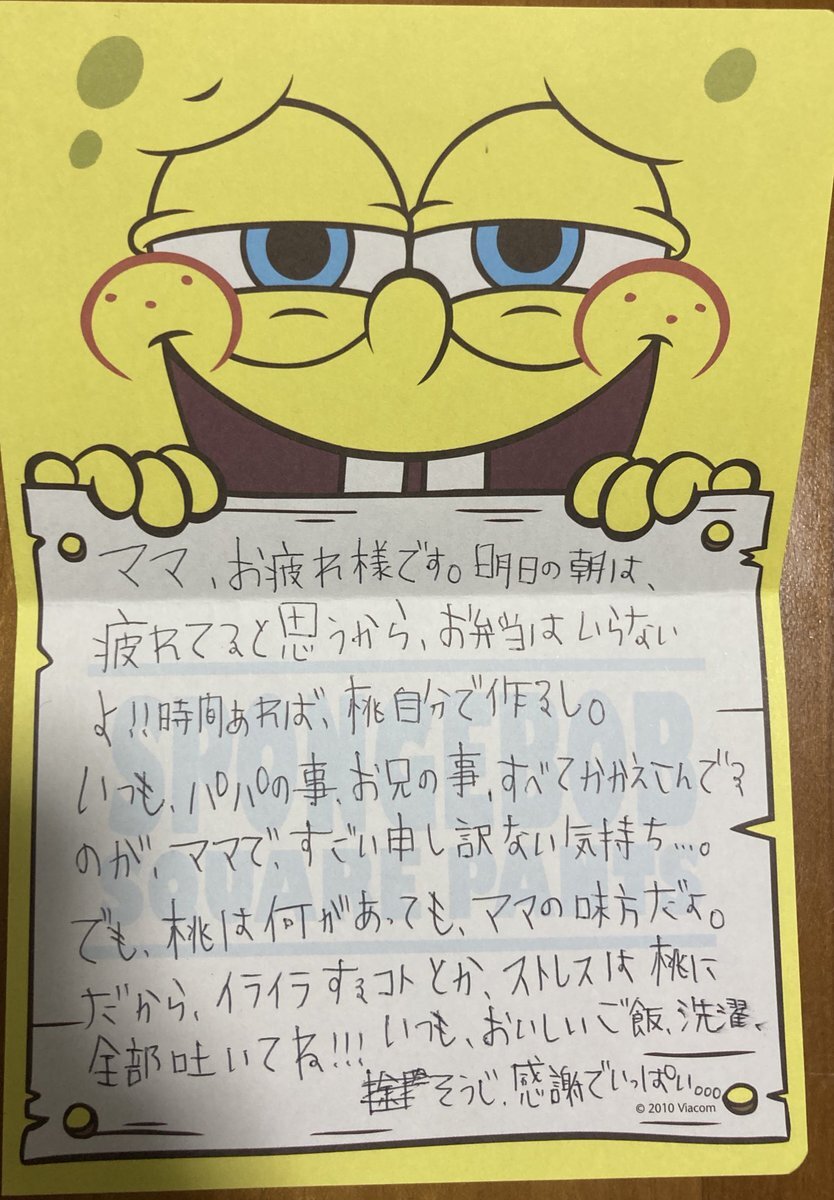 ママ、お疲れ様です。明日の朝は、
疲れてると思うから、お弁当はいらない
よ!!時間あれば、桃自分で作るし。
いつも、パパの事、お兄の事、すべてかかえこんでる
のが、ママで、すごい申し訳ない気持ち…。
でも、桃は何があっても、ママの味方だよ。
だから、イライラするコトとか、ストレスは桃に
全部吐いてね!!!いつも、おいしいご飯、洗濯、
そうじ、感謝でいっぱい…。
© 2010 Viacom
SPONGEBOB
SQUAREPANTS